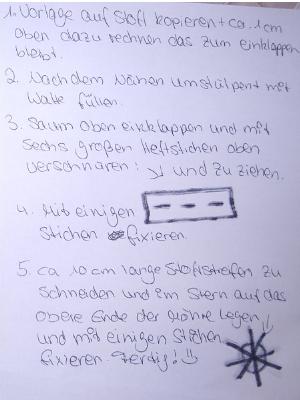 1. Vorlage auf Stoff kopieren + ca. 1cm
oben dazu rechnen das zum einklappen
bleibt.
2. Nach dem Nähen umstülpen + mit
Watte füllen.
3. Saum oben einklappen und mit
sechs großen Heftstichen oben
verschnüren: und zu ziehen.
4. Mit einigen
Stichen fixieren.
5. ca 10cm lange Stoffstreifen zu
schneiden und im Stern auf das
obere Ende der Möhre legen
und mit einigen Stichen
fixieren. Fertig! :)